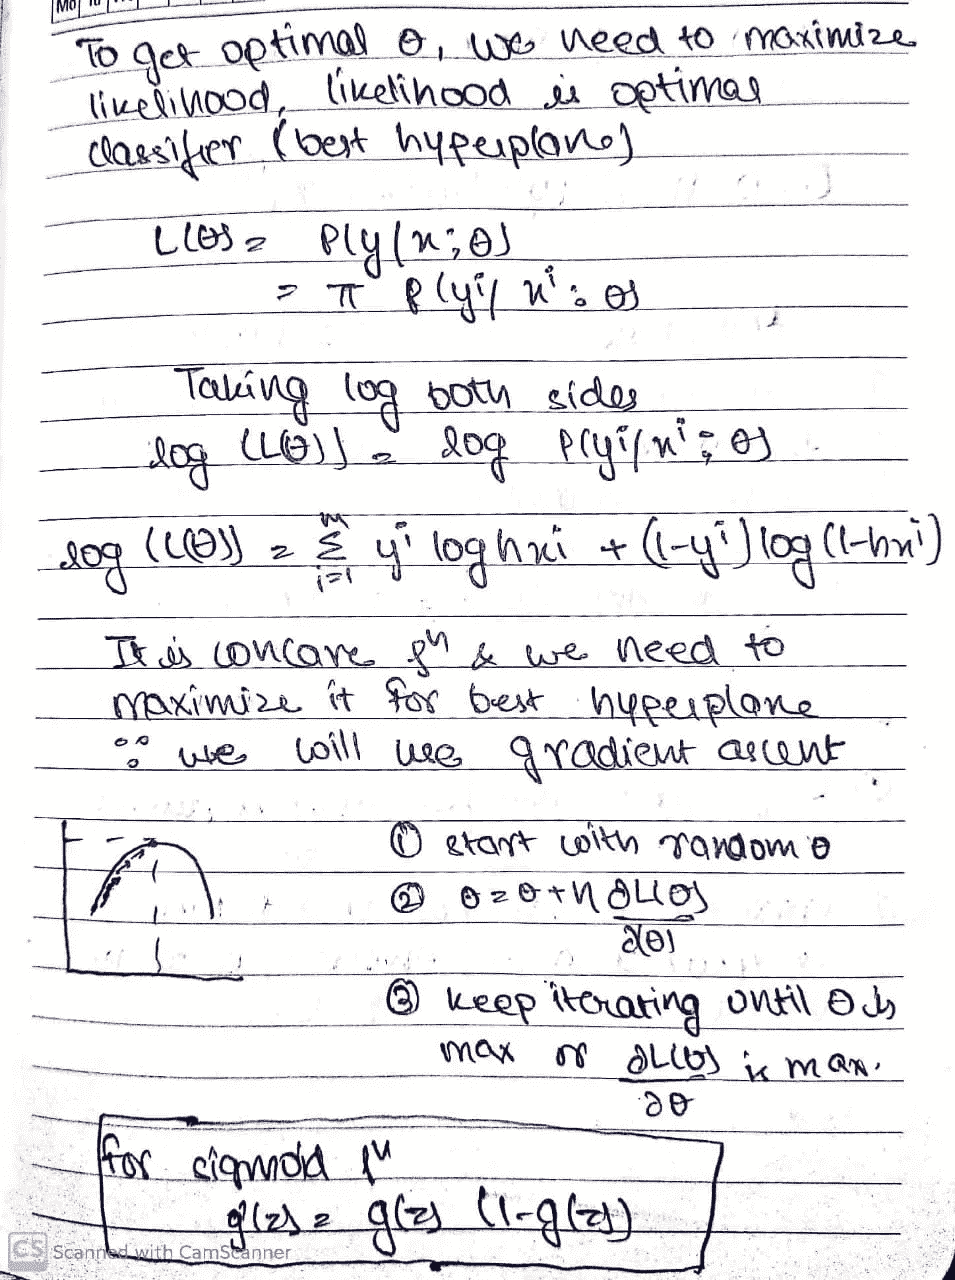 Mo Tu
To get optimal θ, we need to maximize
likelihood, likelihood is optimal
classifier (best hyperplane)
L(θ) = P(y/x;θ)
= π P(yⁱ/xⁱ;θ)
Taking log both sides
log (L(θ)) = log P(yⁱ/xⁱ;θ)
log (L(θ)) = Σ yⁱ log hxi + (1-yⁱ) log (1-hxⁱ)
m
i=1
It is concave fⁿ & we need to
maximize it for best hyperplane
∴ we will use gradient ascent
① start with random θ
② θ = θ + η ∂L(θ)
∂(θ)
③ keep iterating until θ is
max or ∂L(θ) is max.
∂θ
for sigmoid fⁿ
g'(z) = g(z) (1-g(z))
CS Scanned with CamScanner